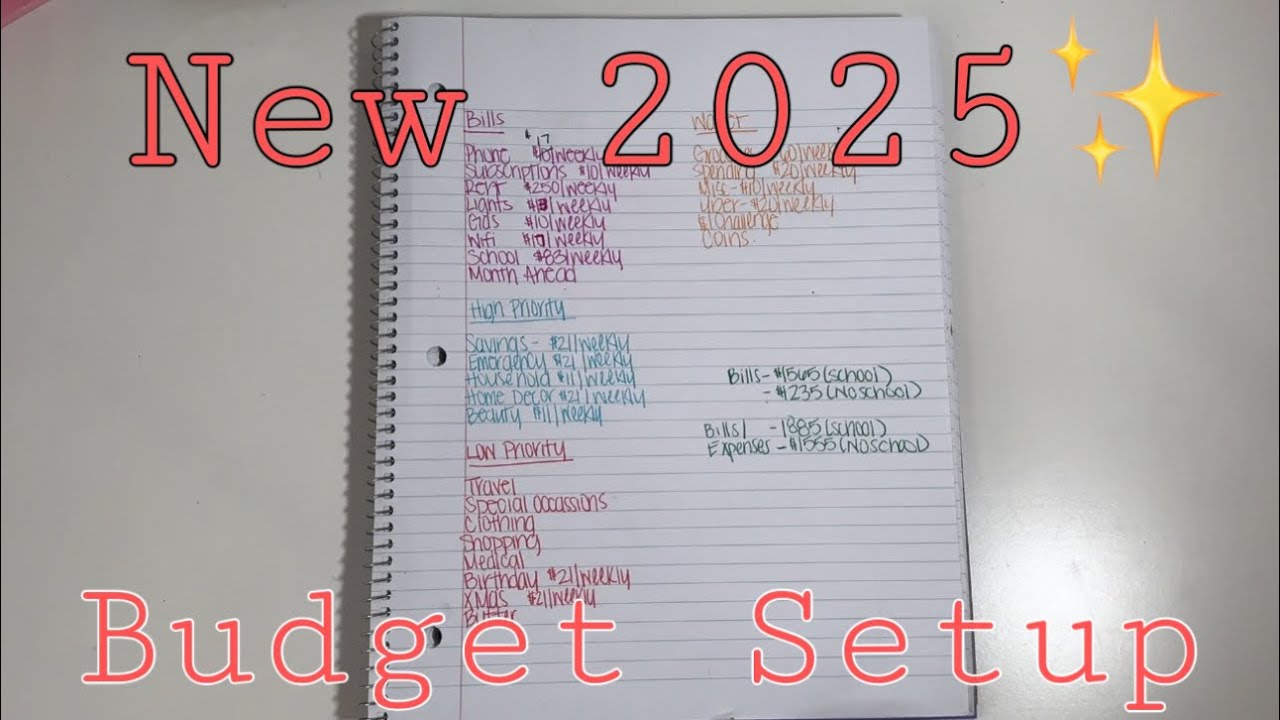 New 2025
Bills
$17
Phone /weekly
Subscriptions $10/weekly
Rent $250/weekly
Lights /weekly
Gas $10/weekly
Wifi /weekly
School $83/weekly
Month Ahead
High Priority
Savings - $21/weekly
Emergency $21/weekly
Household $11/weekly
Home Decor $21/weekly
Beauty $11/weekly
Low Priority
Travel
Special Occassions
Clothing
Shopping
Medical
Birthday $21/weekly
XMas $21/weekly
Spending $20/weekly
Misc - $10/weekly
Uber - $20/weekly
$1 Challenge
Coins
Bills - $1565 (school)
- $1235 (No school)
Bills / - 1885 (school)
Expenses - $1555 (No school)
Budget Setup